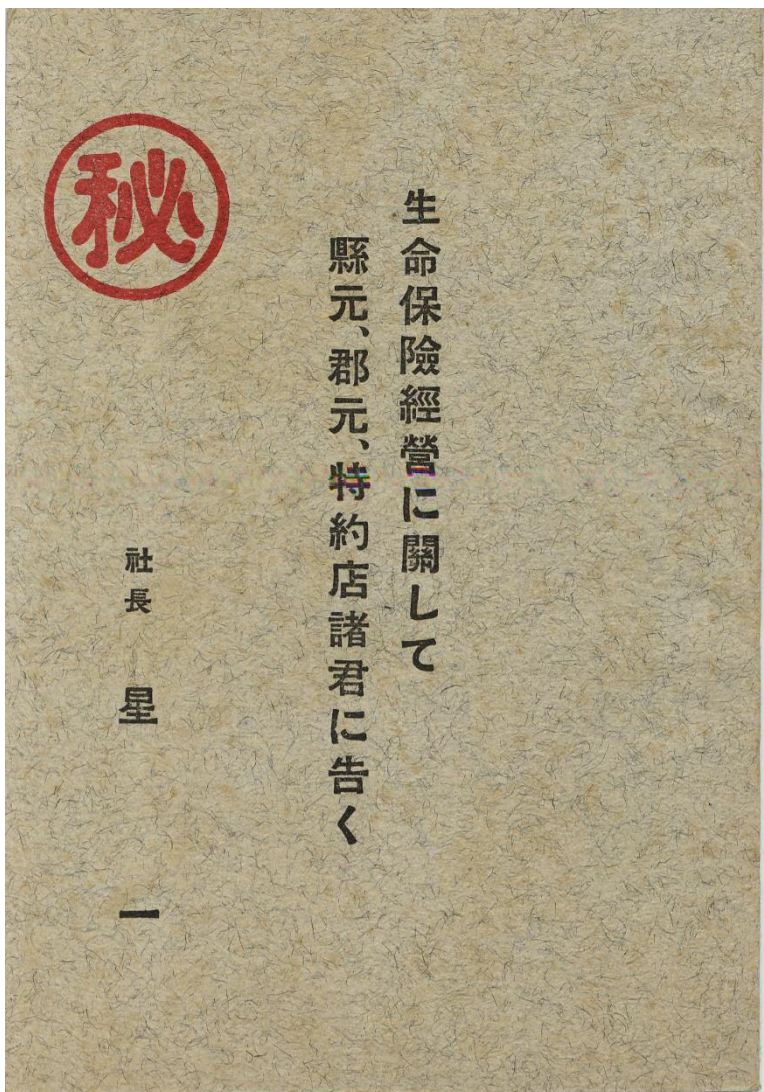 生命保險經營に關して
縣元、郡元、特約店諸君に告く
社長 星 一
秘